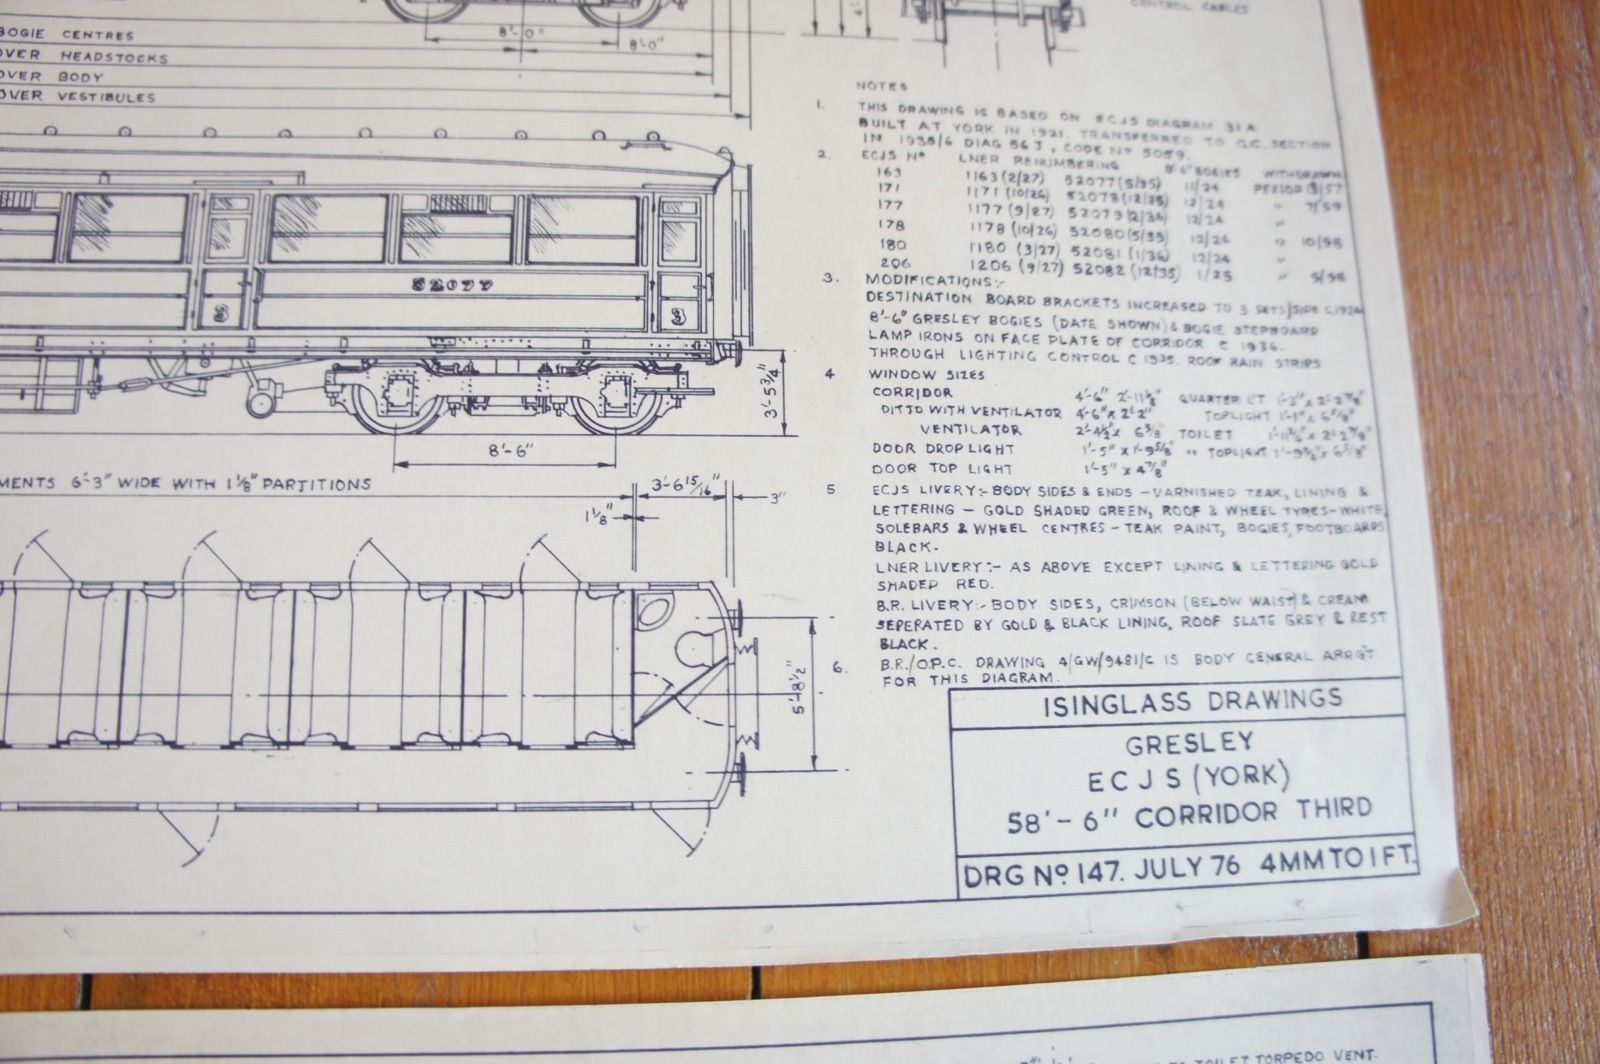 BOGIE CENTRES
OVER HEADSTOCKS
OVER BODY
OVER VESTIBULES
8'-0"
8'-0"
CONTROL CABLES
52077
3
3
3'-5¾"
8'-6"
MENTS 6'-3" WIDE WITH 1⅛" PARTITIONS
3'-6 15/16"
3"
1⅛"
5'-8½"
NOTES
1. THIS DRAWING IS BASED ON ECJS DIAGRAM 31A
BUILT AT YORK IN 1921. TRANSFERRED TO G.C. SECTION
IN 1935/6 DIAG 56J, CODE Nº 5059.
2. ECJS Nº LNER RENUMBERING 8'-6" BOGIES WITHDRAWN
163 1163 (2/27) 52077 (5/35) 11/24 PERIOD 13/57
171 1171 (10/26) 52078 (12/35) 12/24 " 7/59
177 1177 (9/27) 52079 (2/36) 12/24 "
178 1178 (10/26) 52080 (5/35) 12/24 " 10/58
180 1180 (3/27) 52081 (1/36) 12/24 "
206 1206 (9/27) 52082 (12/35) 1/25 " 5/58
3. MODIFICATIONS:-
DESTINATION BOARD BRACKETS INCREASED TO 3 SETS/SIDE C.1924
8'-6" GRESLEY BOGIES (DATE SHOWN) & BOGIE STEPBOARD
LAMP IRONS ON FACE PLATE OF CORRIDOR C 1936.
THROUGH LIGHTING CONTROL C 1935. ROOF RAIN STRIPS
4 WINDOW SIZES
CORRIDOR 4'-6" 2'-11⅛" QUARTER LT 1'-3" x 2'-2⅞"
DITTO WITH VENTILATOR 4'-6" x 2'2" TOPLIGHT 1'-1" x 6⅝"
VENTILATOR 2'-4½" x 6⅝" TOILET 1'-11¾" x 2'-2⅞"
DOOR DROP LIGHT 1'-5" x 1'-9⅝" " TOPLIGHT 1'-9¾" x 6⅝"
DOOR TOP LIGHT 1'-5" x 4⅞"
5 ECJS LIVERY:- BODY SIDES & ENDS - VARNISHED TEAK, LINING &
LETTERING - GOLD SHADED GREEN, ROOF & WHEEL TYRES-WHITE,
SOLEBARS & WHEEL CENTRES - TEAK PAINT, BOGIES, FOOTBOARDS
BLACK.
LNER LIVERY:- AS ABOVE EXCEPT LINING & LETTERING GOLD
SHADED RED.
B.R. LIVERY:- BODY SIDES, CRIMSON (BELOW WAIST) & CREAM
SEPERATED BY GOLD & BLACK LINING, ROOF SLATE GREY & REST
BLACK.
6. B.R./O.P.C. DRAWING 4/GW/9481/C IS BODY GENERAL ARRGT
FOR THIS DIAGRAM.
ISINGLASS DRAWINGS
GRESLEY
ECJS (YORK)
58'-6" CORRIDOR THIRD
DRG Nº 147. JULY 76 4MM TO 1 FT.
TOILET TORPEDO VENT.